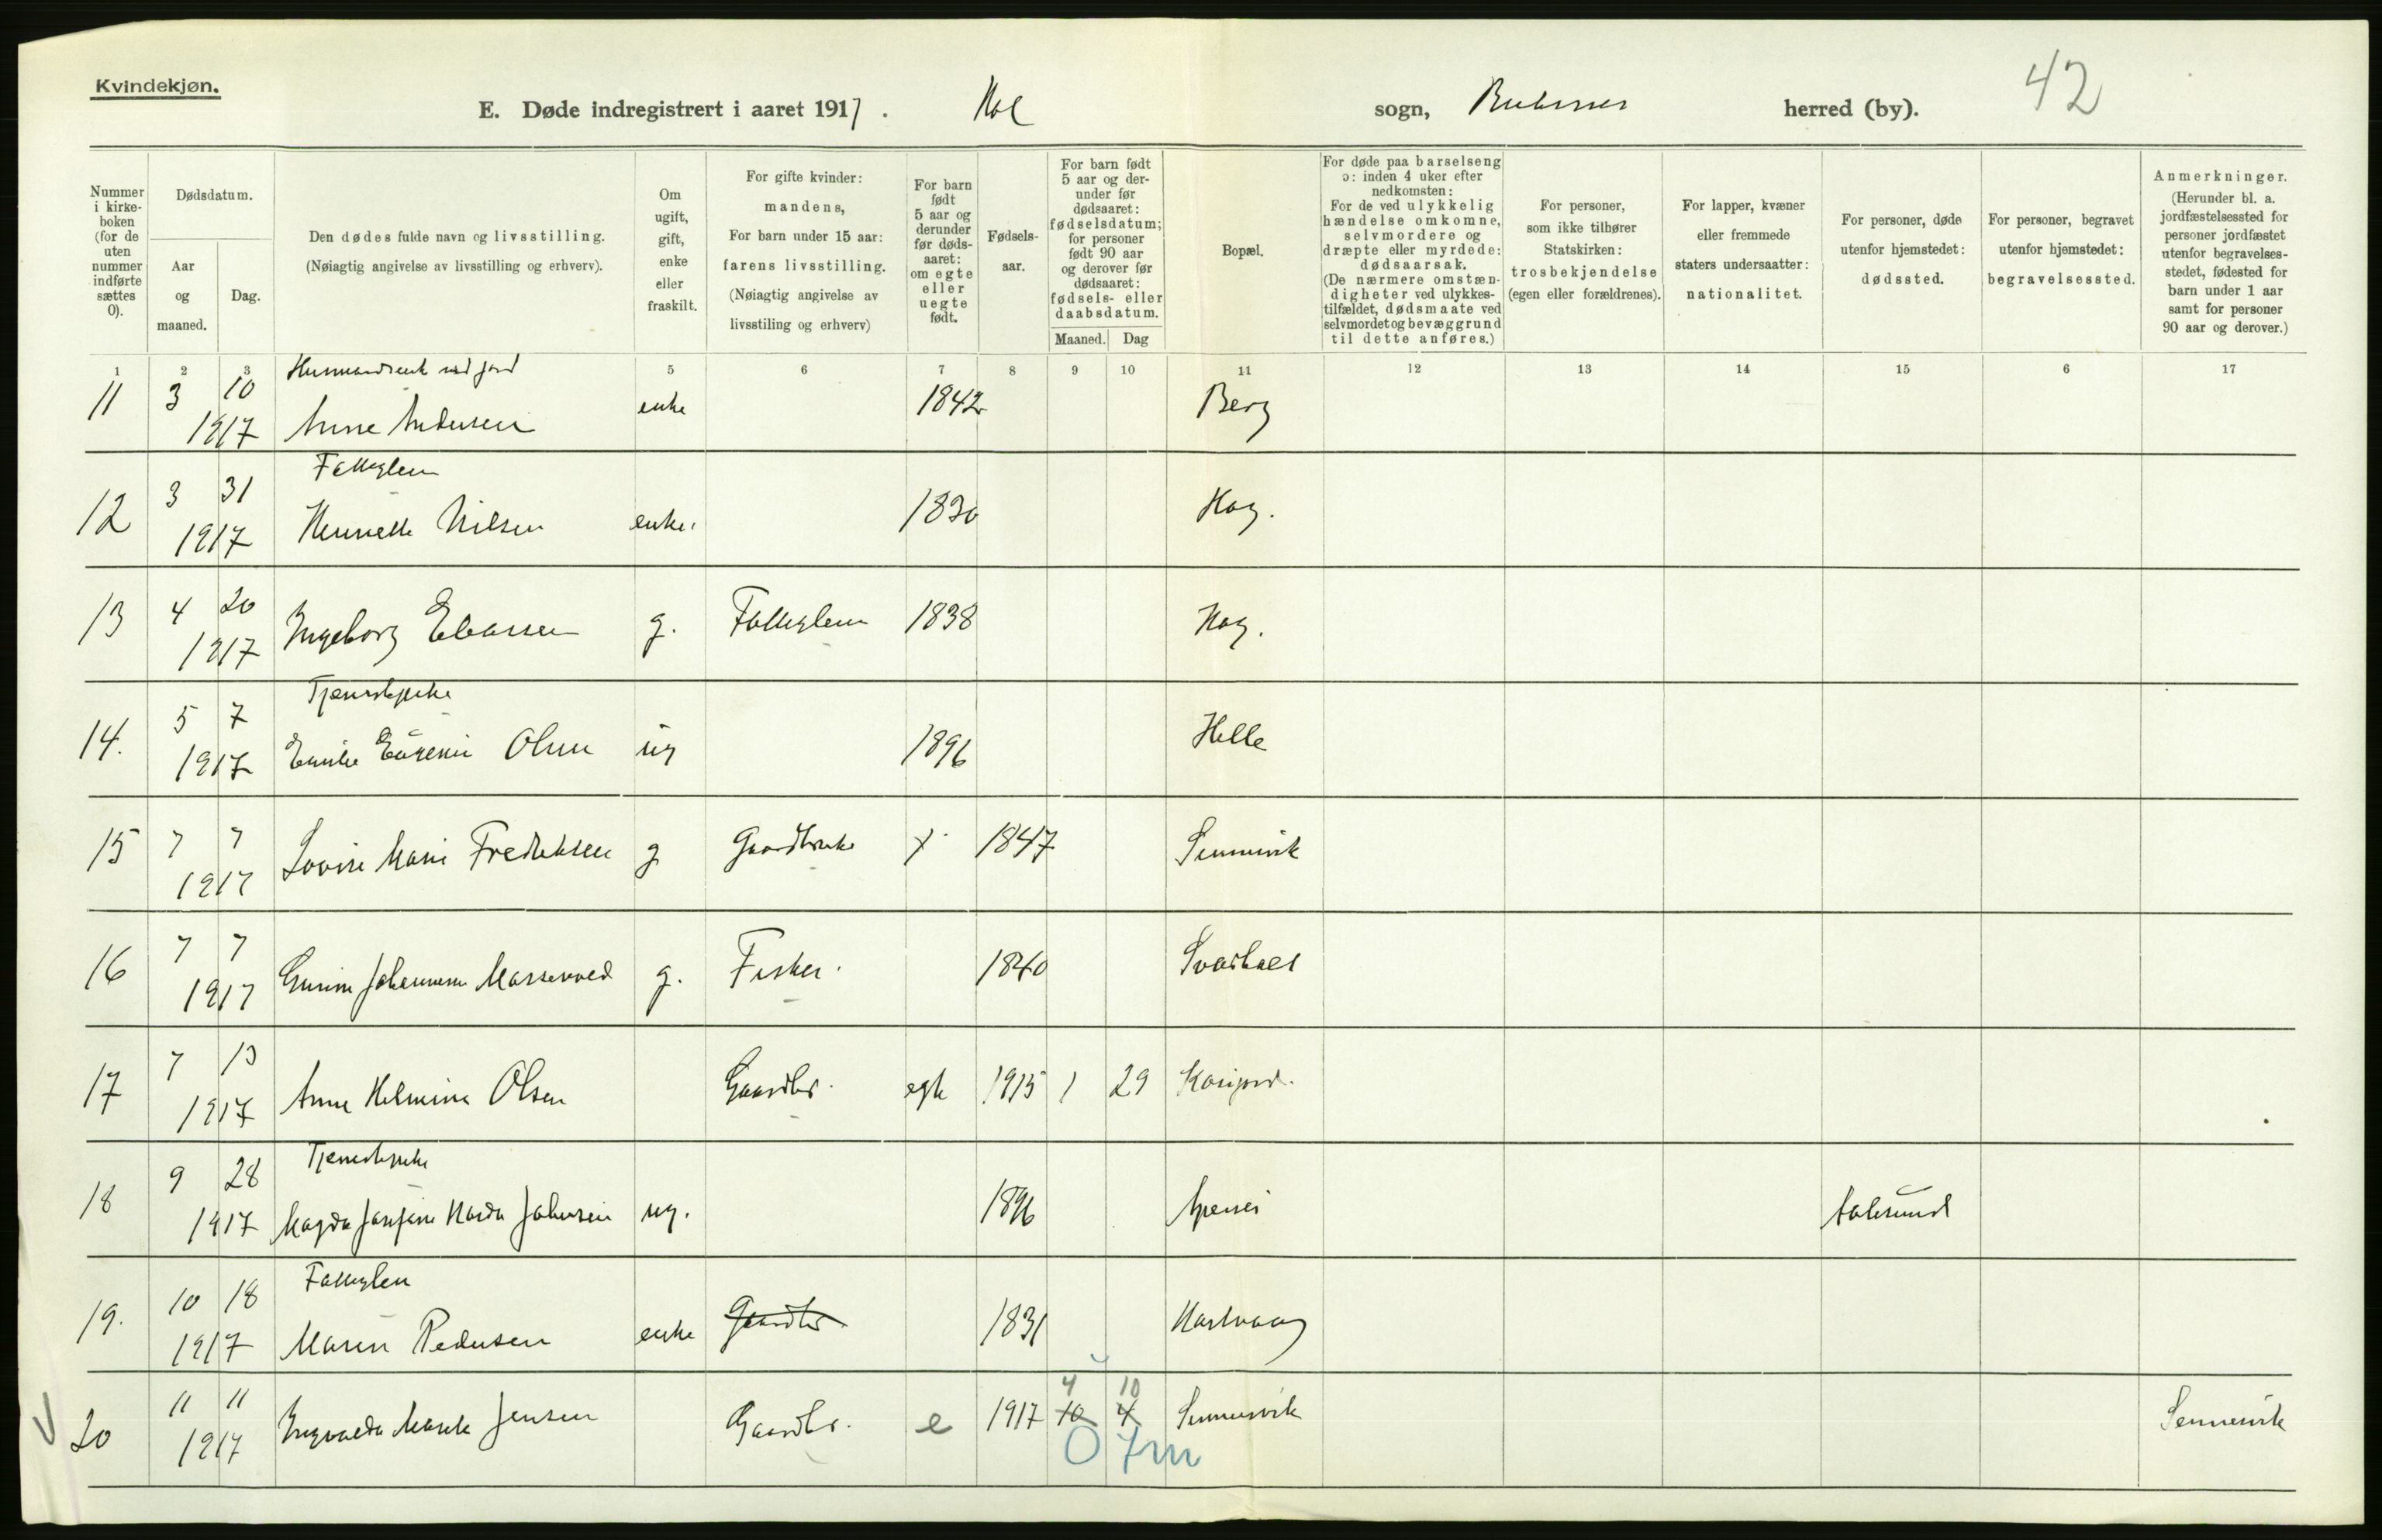 Kvindekjøn.
E. Døde indregistrert i aaret 1917. Hol sogn, Buksnes herred (by). 42
Nummer i kirke-boken (for de uten nummer indførte sættes 0).
Dødsdatum.
Aar og maaned.
Dag.
Den dødes fulde navn og livsstilling.
(Nøiagtig angivelse av livsstilling og erhverv).
Om ugift, gift, enke eller fraskilt.
For gifte kvinder: mandens,
For barn under 15 aar: farens livsstilling.
(Nøiagtig angivelse av livsstiling og erhverv)
For barn født 5 aar og derunder før døds-aaret: om egte eller uegte født.
Fødsels-aar.
For barn født 5 aar og der-under før dødsaaret: fødselsdatum; for personer født 90 aar og derover før dødsaaret: fødsels- eller daabsdatum.
Maaned. Dag
Bopæl.
For døde paa barselseng ɔ: inden 4 uker efter nedkomsten:
For de ved ulykkelig hændelse omkomne, selvmordere og dræpte eller myrdede: dødsaarsak.
(De nærmere omstæn-digheter ved ulykkes-tilfældet, dødsmaate ved selvmordet og bevæggrund til dette anføres.)
For personer, som ikke tilhører Statskirken: trosbekjendelse (egen eller forældrenes).
For lapper, kvæner eller fremmede staters undersaatter: nationalitet.
For personer, døde utenfor hjemstedet: dødssted.
For personer, begravet utenfor hjemstedet: begravelsessted.
Anmerkninger.
(Herunder bl. a. jordfæstelsessted for personer jordfæstet utenfor begravelses-stedet, fødested for barn under 1 aar samt for personer 90 aar og derover.)
1 2 3 5 6 7 8 9 10 11 12 13 14 15 6 17
Husmandsenk med jord
11 3 10 1917 Anne Andersen enke 1842 Berg
Fattiglem
12 3 31 1917 Nilsen enke. 1830 Hag.
13 4 20 1917 Ingeborg Eliassen g. Fattiglem 1838 Hag.
Tjenestepike
14. 5 7 1917 Emilie Eugenie Olsen ug 1896 Helle
15 7 7 1917 Lovise Marie Fredriksen g Gaardbruker 1847 Sennesvik
16 7 7 1917 Johannesen g. Fisker. 1840
17 7 13 1917 Anne Helmine Olsen Gaardbr. egte 1915 1 29
Tjenestepike
18 9 28 1917 Magda Johnsen ug. 1896 Aalesund
Fattiglem
19. 10 18 1917 Maren Pedersen enke Gaardbr. 1831 Hartvaag
20 11 11 1917 Ingvalda Marete Jensen Gaardbr. e 1917 10 4 4 10 Sennesvik Sennesvik
0 7m